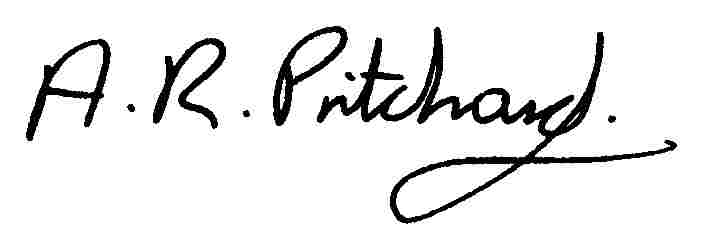 A. R. Pritchard.